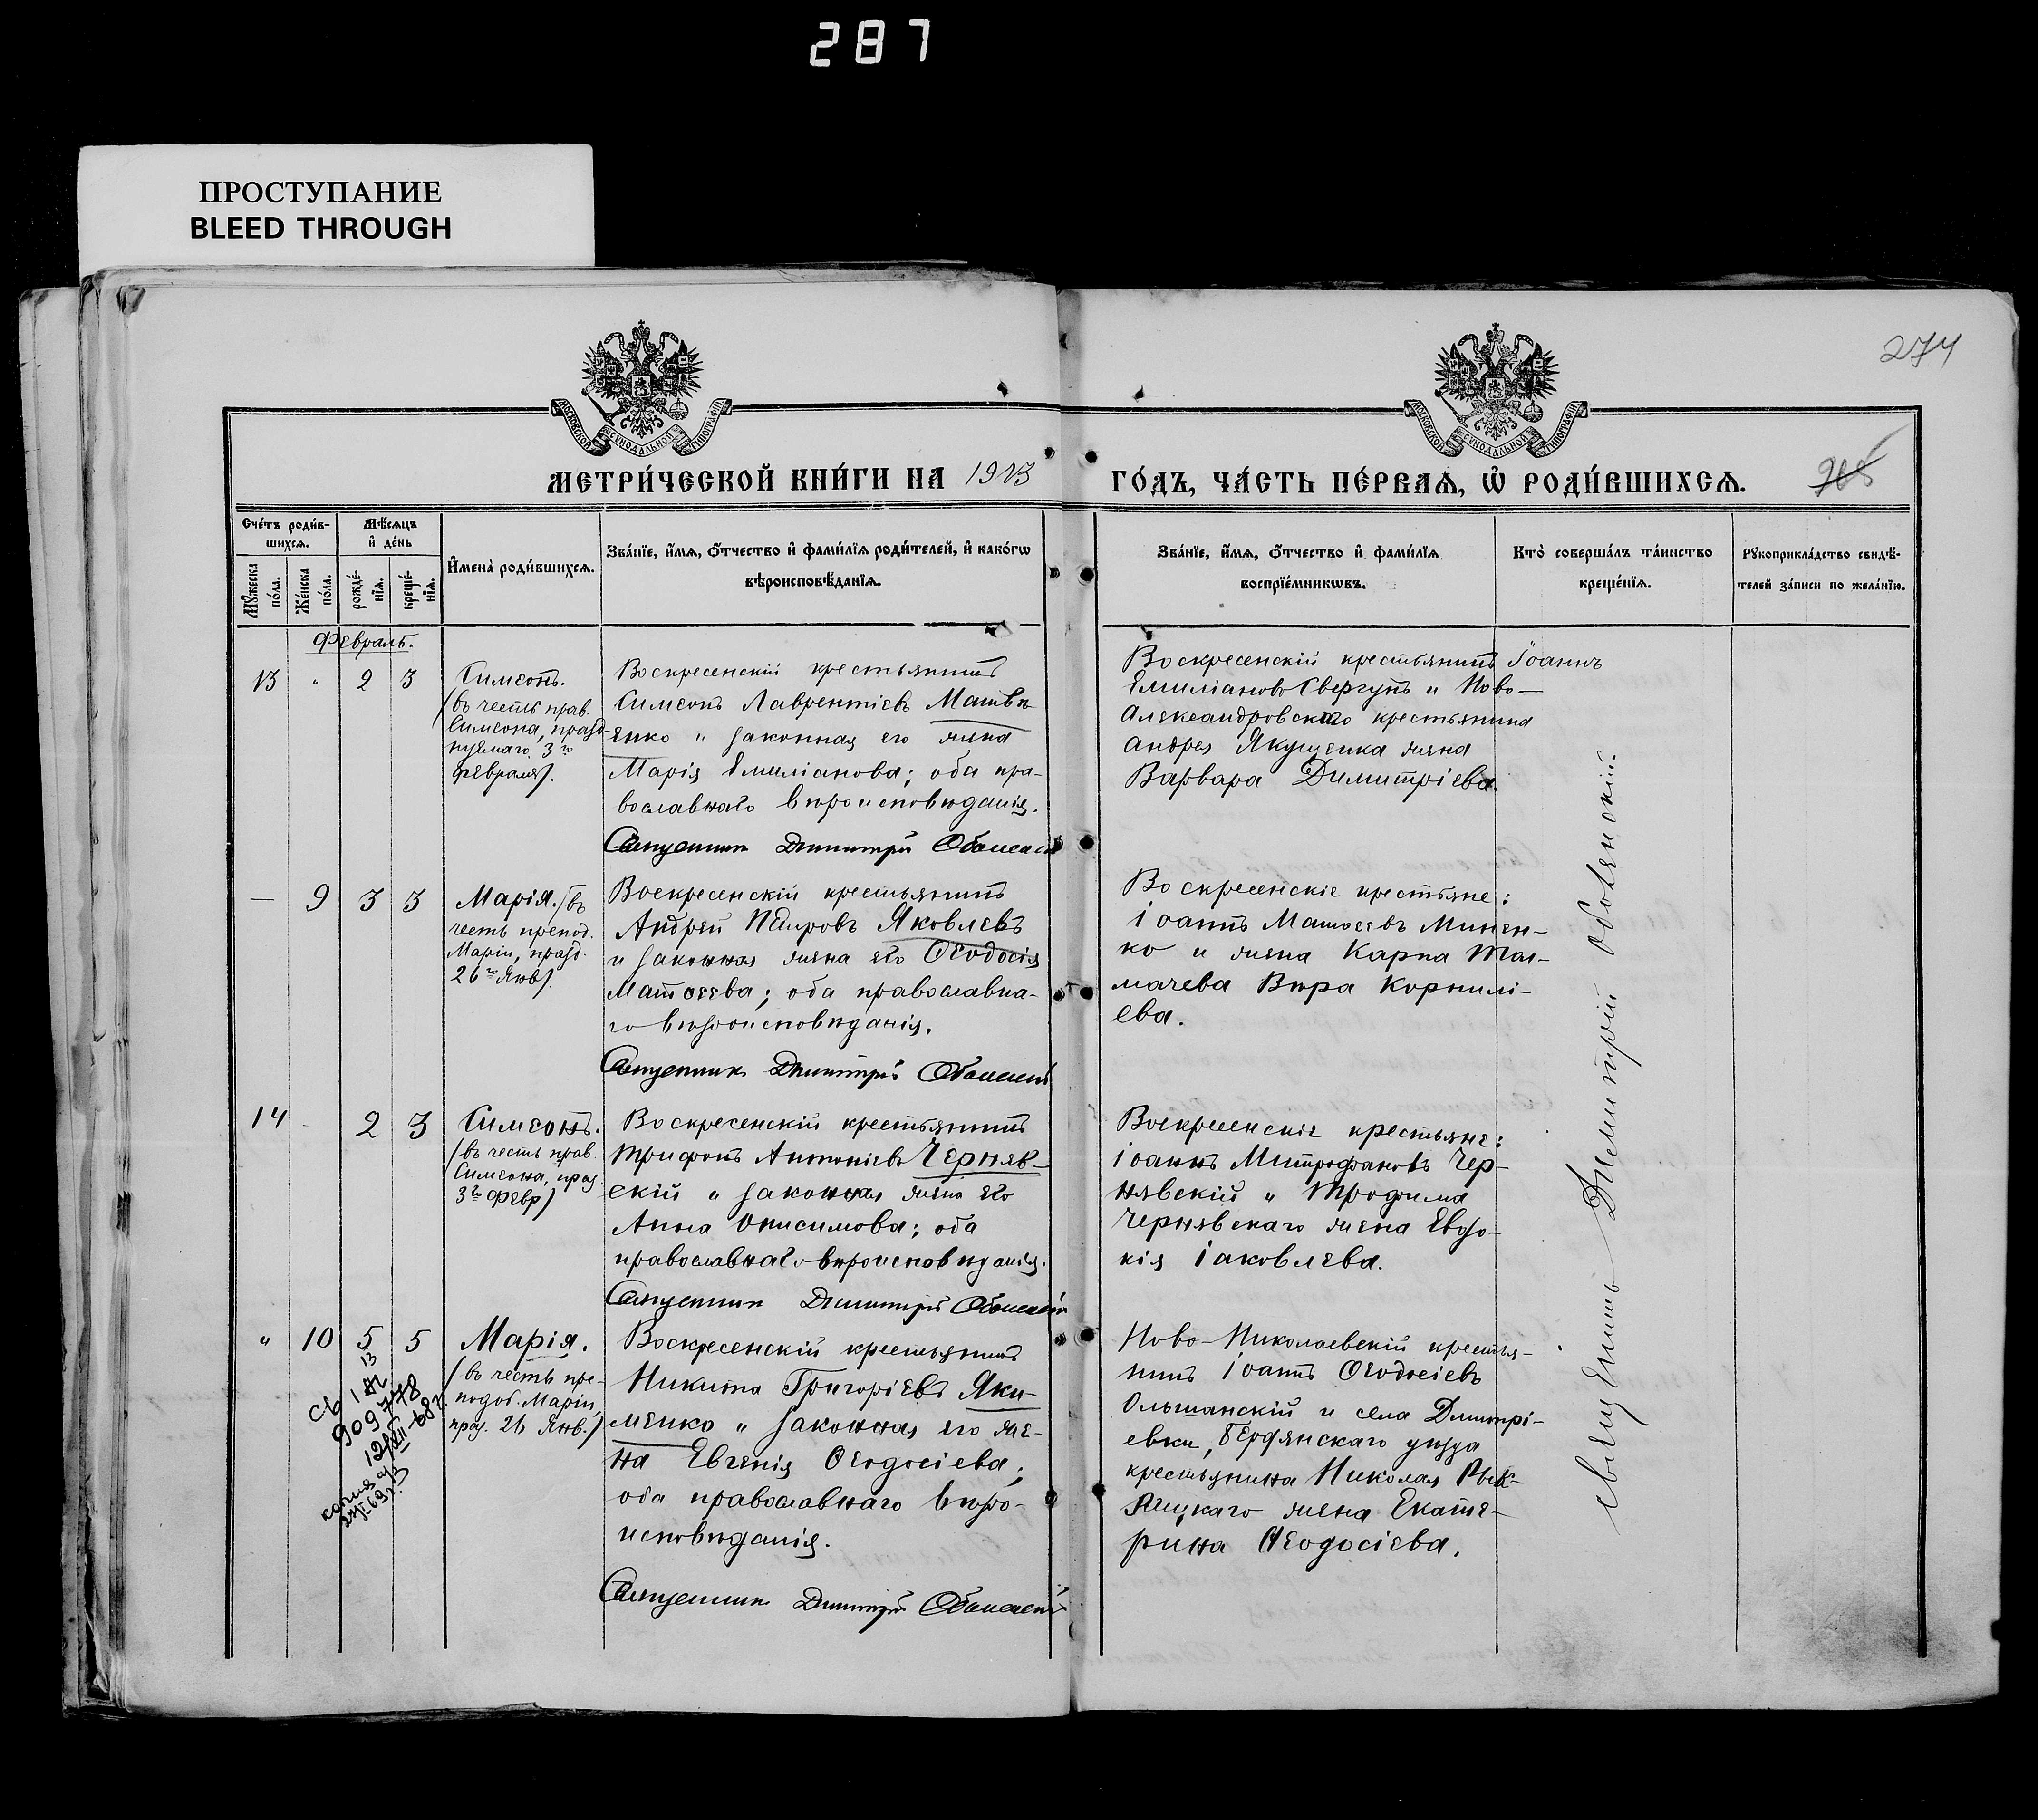 287
ПРОСТУПАНИЕ
BLEED THROUGH
274
МОСКОВСКОЙ СѴНОДАЛЬНОЙ ТИПОГРАФІИ
МОСКОВСКОЙ СѴНОДАЛЬНОЙ ТИПОГРАФІИ
МЕТРИ́ЧЕСКОЙ КНИ́ГИ НА 1913 ГО́ДЪ, ЧА́СТЬ ПЕ́РВАѦ, Ѡ҆ РОДИ́ВШИХСѦ.
Сче́тъ роди́в-
шихсѧ.
Мѣ́сѧцъ
и҆ де́нь
Мꙋ́жеска
по́ла.
Же́нска
по́ла.
рожде́-
нїѧ.
креще́-
нїѧ.
И҆мена̀ роди́вшихсѧ.
Зва́нїе, и҆́мѧ, ѻ҆́тчество и҆ фами́лїѧ роди́телей, и҆ како́гѡ
вѣроисповѣ́данїѧ.
Зва́нїе, и҆́мѧ, ѻ҆́тчество и҆ фами́лїѧ
воспрїе́мникѡвъ.
Кто̀ соверша́лъ та́инство
креще́нїѧ.
Рꙋкоприкла́дство свидѣ́-
телей за́писи по жела́нїю.
Февраль.
13 " 2 3
Симеонъ.
(въ честь прав.
Симеона, празд-
нуемаго 3го
февраля).
Воскресенскій крестьянинъ
Симеонъ Лаврентіевъ Матвѣ-
енко и законная его жена
Марія Емиліанова; оба пра-
вославнаго вѣроисповѣданія.
Священникъ Димитрій Обоянскій
Воскресенскій крестьянинъ Іоаннъ
Емиліановъ Свергунъ и Ново-
Александровскаго крестьянина
Андрея Якущенка жена
Варвара Димитріева.
— 9 3 3
Марія. (въ
честь препод.
Маріи, празд.
26го Янв).
Воскресенскій крестьянинъ
Андрей Петровъ Яковлевъ
и законная жена его Ѳеодосія
Матѳеева; оба православна-
го вѣроисповѣданія.
Священникъ Димитрій Обоянскій
Воскресенскіе крестьяне:
Іоаннъ Матѳеевъ Минен-
ко и жена Карпа Тол-
мачева Вѣра Корнилі-
ева.
14 2 3
Симеонъ.
(въ честь прав.
Симеона, праз.
3го Февр)
Воскресенскій крестьянинъ
Трифонъ Антоніевъ Черняв-
скій и законная жена его
Анна Онисимова; оба
православнаго вѣроисповѣданія.
Священникъ Димитрій Обоянскій
Воскресенскіе крестьяне:
Іоаннъ Митрофановъ Чер-
нявскій и Трофима
Чернявскаго жена Евдо-
кія Іаковлева.
" 10 5 5
Марія.
(въ честь пре-
подоб. Маріи,
праз. 26 Янв.)
Воскресенскій крестьянинъ
Никита Григоріевъ Яки-
менко и законная его же-
на Евгенія Ѳеодосіева;
оба православнаго вѣро-
исповѣданія.
Священникъ Димитрій Обоянскій
Ново-Николаевскій крестья-
нинъ Іоаннъ Ѳеодосіевъ
Ольшанскій и села Димитрі-
евки, Бердянскаго уѣзда
крестьянина Николая
жена Екате-
рина Ѳеодосіева.
909778
12/VII-68г.
копия
Священникъ Димитрій Обоянскій.